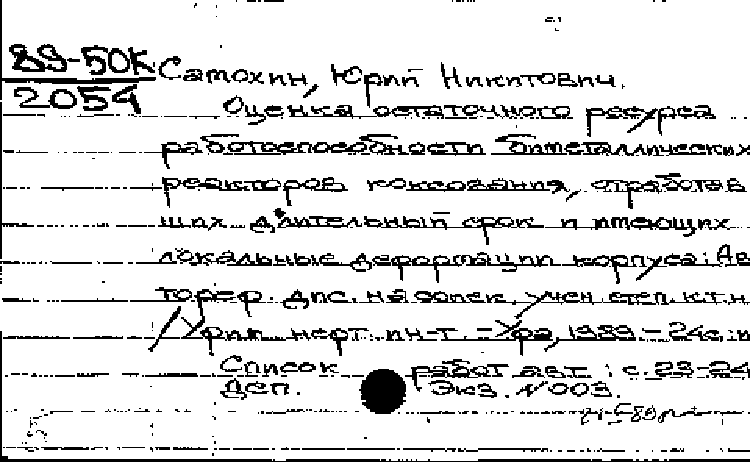 89-50К
2054
Самохин, Юрий Никитович.
Оценка остаточного ресурса
работоспособности биметаллических
реакторов коксования, отработав
ших длительный срок и имеющих
локальные деформации корпуса: Ав
тореф. дис. на соиск. учен. степ. к.т.н.
/Уфим. нефт. ин-т. - Уфа, 1989. - 24с.: и
Список работ авт.: с. 23-24
Деп. Экз. №003.